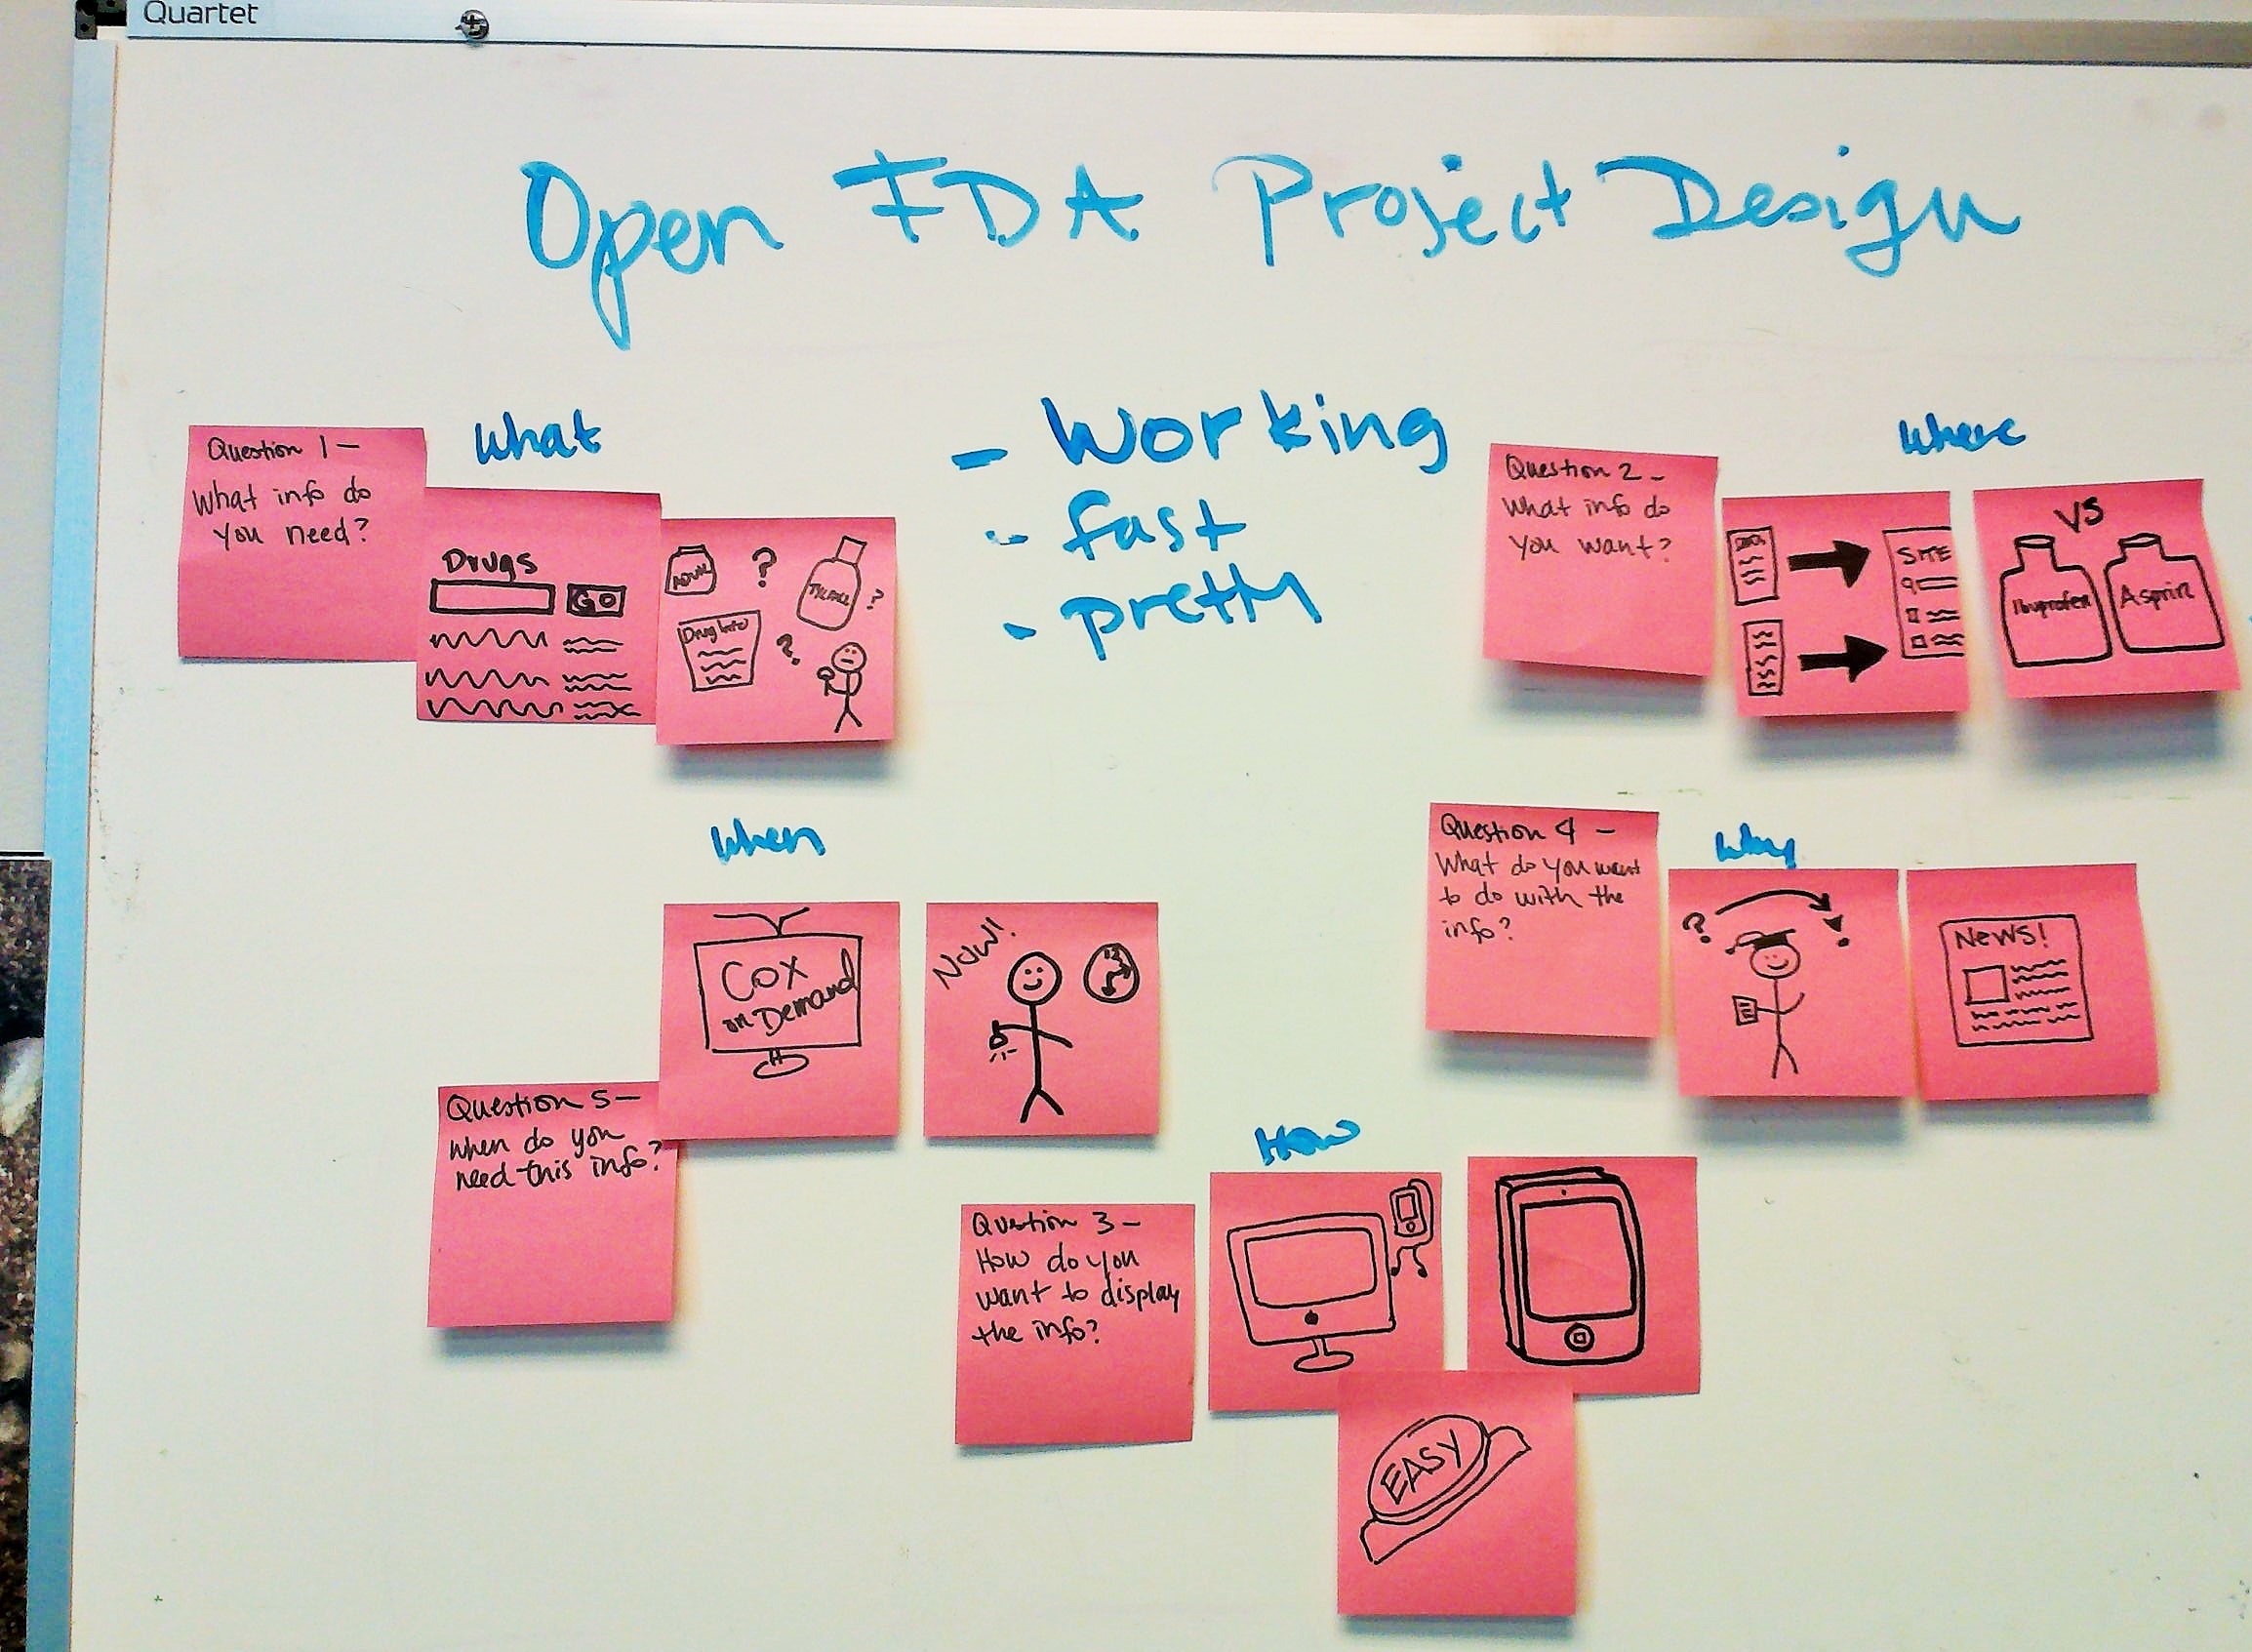 Quartet
Open FDA Project Design
What
- Working
- fast
- pretty
Where
Question 1 -
What info do
you need?
Drugs
GO
ADVIL
?
?
Drug Info
?
Question 2 -
What info do
you want?
SITE
VS
Ibuprofen
Asprin
When
Cox
on Demand
NOW!
Question 5 -
When do you
need this info?
Why
Question 4 -
What do you want
to do with the
info?
?
!
News!
How
Question 3 -
How do you
want to display
the info?
EASY